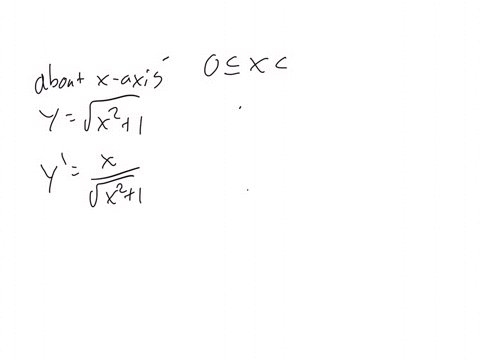 about x-axis 0 ≤ x <
y = √(x²+1)
y' = x/√(x²+1)